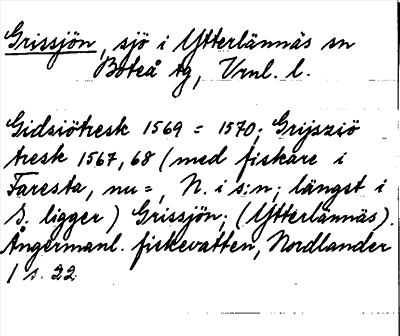 Grissjön, sjö i Ytterlännäs sn
Boteå tg, Vrnl. l.
Gidsiötresk 1569 = 1570; Grijsziö
tresk 1567, 68 (med fiskare i
Faresta, nu =, N. i s:n; längst i
S. ligger) Grissjön; (Ytterlännäs).
Ångermanl. fiskevatten, Nordlander
1 s. 22